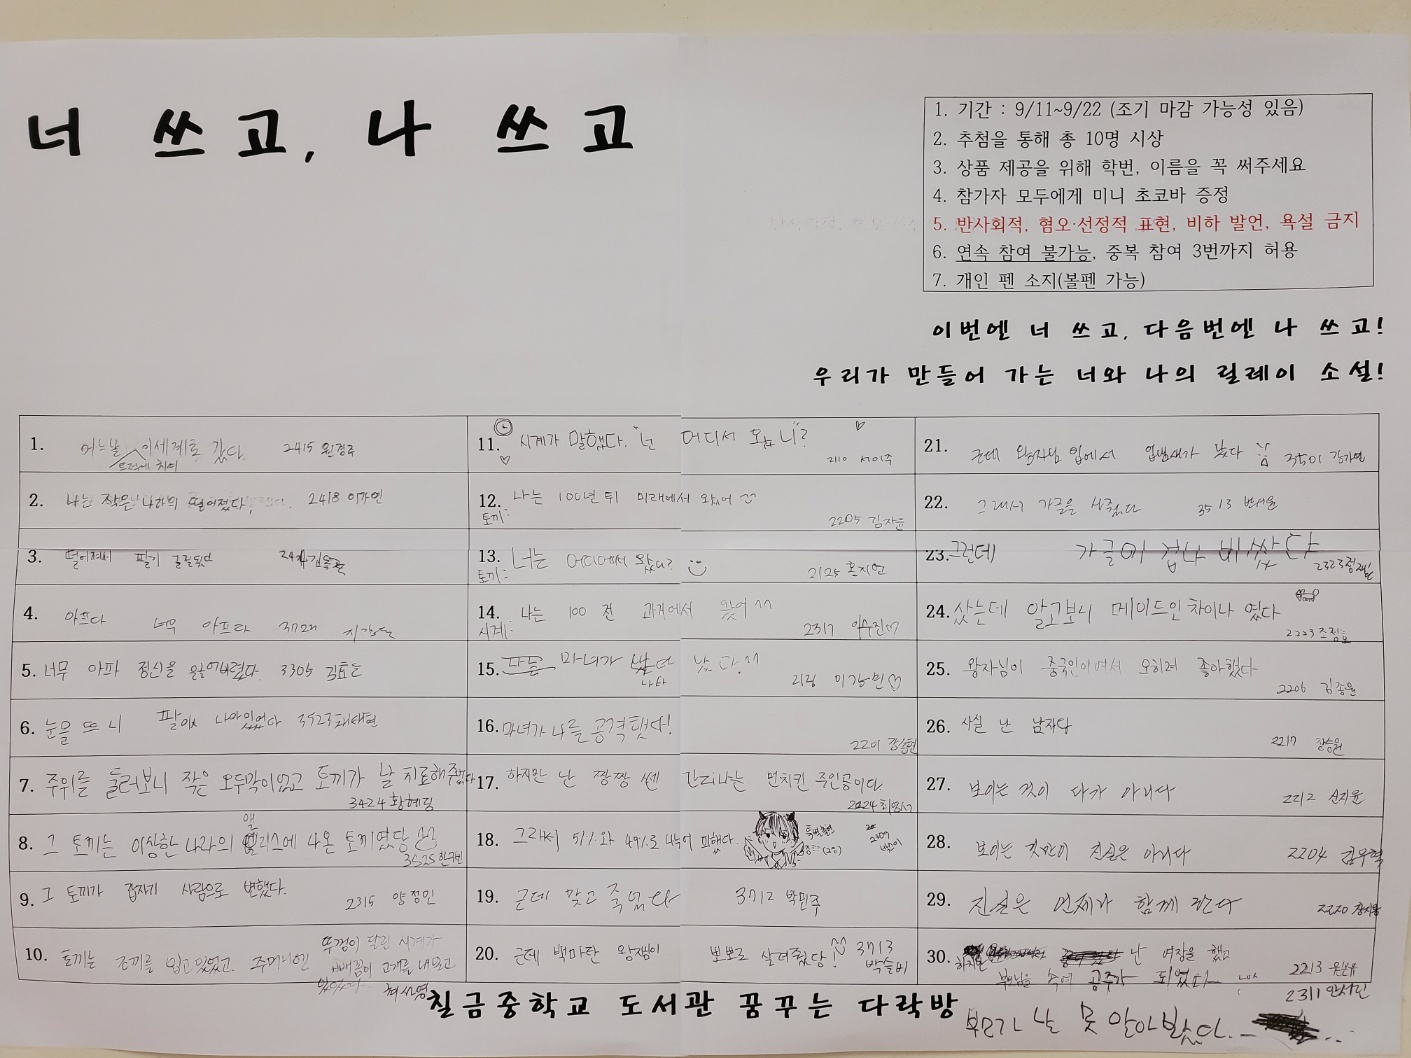 너 쓰고, 나 쓰고
1. 기간 : 9/11~9/22 (조기 마감 가능성 있음)
2. 추첨을 통해 총 10명 시상
3. 상품 제공을 위해 학번, 이름을 꼭 써주세요
4. 참가자 모두에게 미니 초코바 증정
5. 반사회적, 혐오·선정적 표현, 비하 발언, 욕설 금지
6. 연속 참여 불가능, 중복 참여 3번까지 허용
7. 개인 펜 소지(볼펜 가능)
이번엔 너 쓰고, 다음번엔 나 쓰고!
우리가 만들어 가는 너와 나의 릴레이 소설!
1. 어느날 이세계로 갔다. 2415
2. 나는 작은 나라의 떨어졌다. 2418 이가인
3. 떨어져서 팔기
4. 아프다 너무 아프다
5. 너무 아파 정신을 잃어버렸다. 3305
6. 눈을 뜨니 팔이 나아있었다 3423
7. 주위를 둘러보니 작은 오두막이었고 토끼가 날 치료해주었다
3424 황혜림
8. 그 토끼는 이상한 나라의 앨리스에 나온 토끼였당
3525
9. 그 토끼가 갑자기 사람으로 변했다.
2315 양정민
10. 토끼는 조끼를 입고있었고. 주머니엔 뚜껑이 달린 시계가
빼꼼이 고개를 내밀고
있었다
11. 시계가 말했다. "넌 어디서 왔니?
2110 서이주
12. 나는 100년 뒤 미래에서 왔어
토끼: 2205 김자윤
13. 너는 어디에서 왔니?
토끼: 2125 홍지연
14. 나는 100 전 과거에서 왔어 ^^
시계: 2317
15. 마녀가 나타 났다!^^
16. 마녀가 나를 공격했다!
17. 하지만 난 짱짱 쎈 간지나는 먼치킨 주인공이다
2024
18. 그래서 51%와 49%로 나누어 피했다.
19. 근데 맞고 죽었다 3712 박민주
20. 근데 백마탄 왕쟁이 뽀뽀로 살려줬당! 3713
박슬비
21. 근데 왕자님 입에서 입냄새가 났다
22. 그래서 가글을 시켰다 3513
23. 그런데 가글이 겁나 비쌌다
2323
24. 샀는데 알고보니 메이드인차이나 였다
2223
25. 왕자님이 중국인이여서 오히려 좋아했다
2206 김종율
26. 사실 난 남자당
2217
27. 보이는 것이 다가 아니다 2212 신지윤
28. 보이는 것만이 진실은 아니다 2204
29. 진실은 언제나 함께 한다 2220
30. 하지만 난 여장을 했고
부모님을 속여 공주가 되었다 2213
2311
부모가 날 못 알아봤다...
칠금중학교 도서관 꿈꾸는 다락방